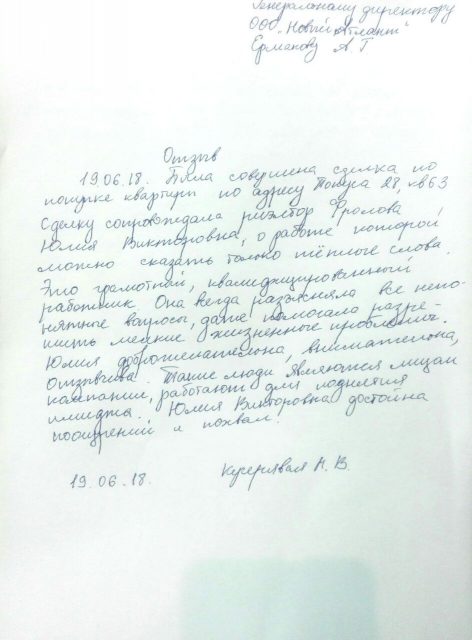 Генеральному директору
ООО "Новый Атлант"
Ермакову А. Г
Отзыв
19.06.18. Была совершена сделка по
покупке квартиры по адресу 28, кв 63
Сделку сопровождала риэлтор Фролова
Юлия Викторовна, о работе которой
можно сказать только тёплые слова.
Это грамотный, квалифицированный
работник. Она всегда разъясняла все непо-
нятные вопросы, даже помогала разре-
шить мелкие жизненные проблемы.
Юлия доброжелательна, внимательна,
отзывчива. Такие люди являются лицом
кампании, работают для поднятия
имиджа. Юлия Викторовна достойна
поощрений и похвал.
19.06.18. Н. В.